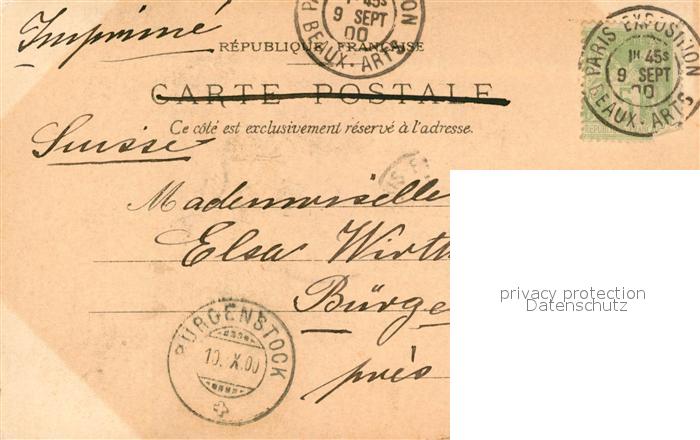 Imprimé
PARIS EXPOSITION
1ᴱ 45s
9 SEPT
00
BEAUX-ARTS
PARIS EXPOSITION
1ᴱ 45s
9 SEPT
00
BEAUX-ARTS
RÉPUBLIQUE FRANÇAISE
CARTE POSTALE
Ce côté est exclusivement réservé à l'adresse.
Suisse
Mademoiselle
Elsa Wirth
Bürge
près
BÜRGENSTOCK
10. X.00
privacy protection
Datenschutz